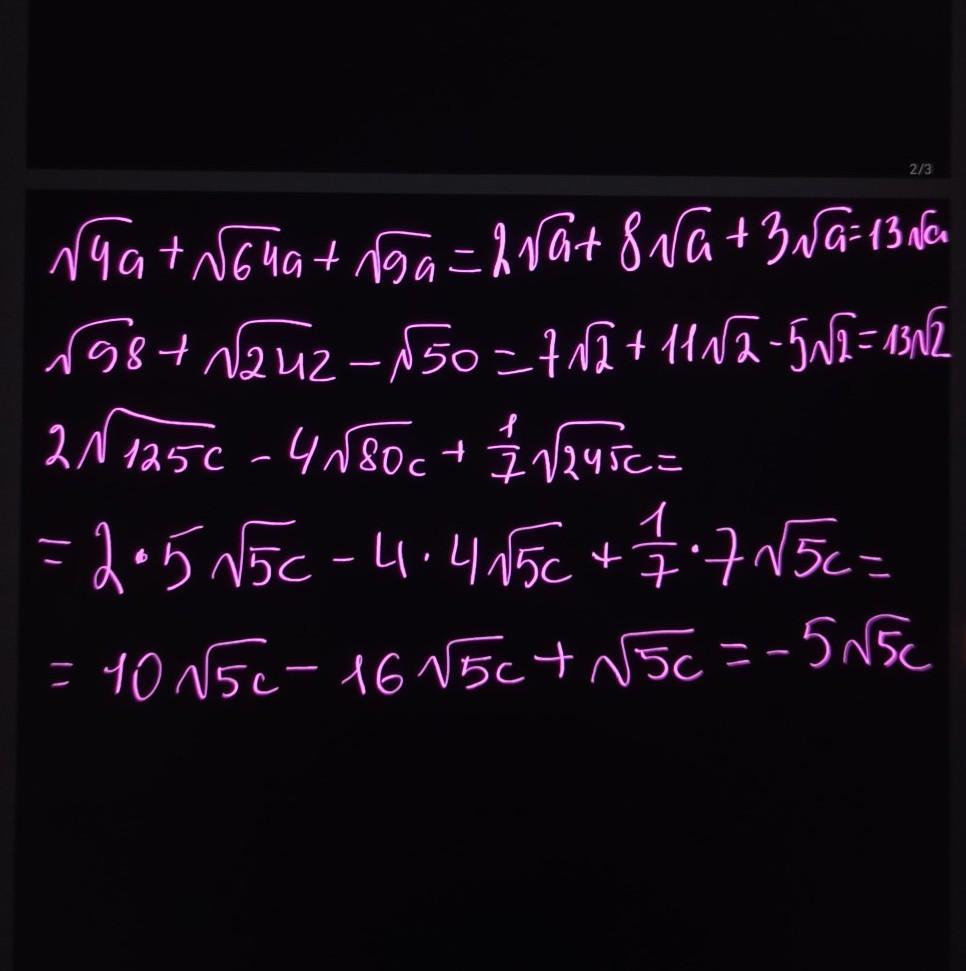 2/3
√4a + √64a + √9a = 2√a + 8√a + 3√a = 13√a
√98 + √242 - √50 = 7√2 + 11√2 - 5√2 = 13√2
2√125c - 4√80c + 1/7 √245c =
= 2·5√5c - 4·4√5c + 1/7·7√5c =
= 10√5c - 16√5c + √5c = -5√5c